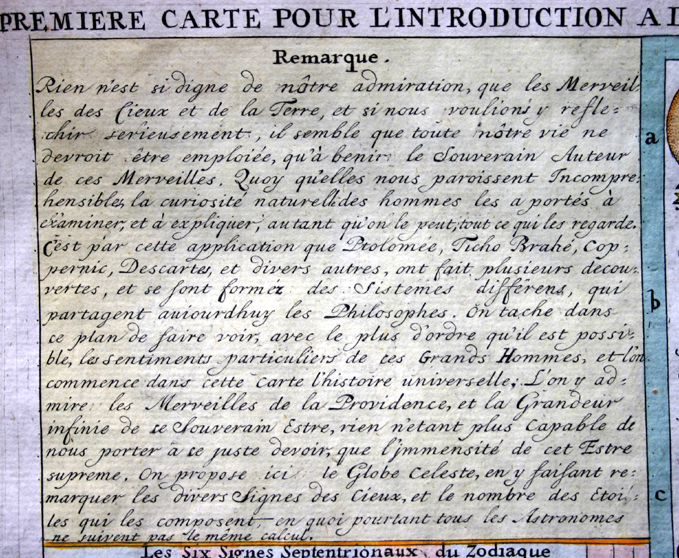 PREMIERE CARTE POUR L'INTRODUCTION A L
Remarque.
Rien n'est si digne de nôtre admiration, que les Merveil
les des Cieux et de la Terre, et si nous voulions y refle-
chir serieusement, il semble que toute nôtre vie ne
devroit être emploiée, qu'à benir le Souverain Auteur
de ces Merveilles. Quoy qu'elles nous paroissent Incompre
hensibles, la curiosité naturelle des hommes les a portés à
examiner, et à expliquer, autant qu'on le peut, tout ce qui les regarde.
C'est par cette application que Ptolomée, Ticho Brahé, Cop-
pernic, Descartes, et divers autres, ont fait plusieurs decou-
vertes, et se sont formez des Sistemes différens, qui
partagent auiourdhuy les Philosophes. On tache dans
ce plan de faire voir, avec le plus d'ordre qu'il est possi-
ble, les sentiments particuliers de ces Grands Hommes, et l'on
commence dans cette Carte l'histoire universelle; L'on y ad-
mire les Merveilles de la Providence, et la Grandeur
infinie de ce Souverain Estre, rien n'etant plus Capable de
nous porter à ce juste devoir, que l'immensité de cet Estre
supreme. On propose ici le Globe Celeste, en y faisant re-
marquer les divers Signes des Cieux, et le nombre des Etoi-
les qui les composent, en quoy pourtant tous les Astronomes
ne suivent pas le même calcul.
Les Six Signes Septentrionaux du Zodiaque
a
b
c